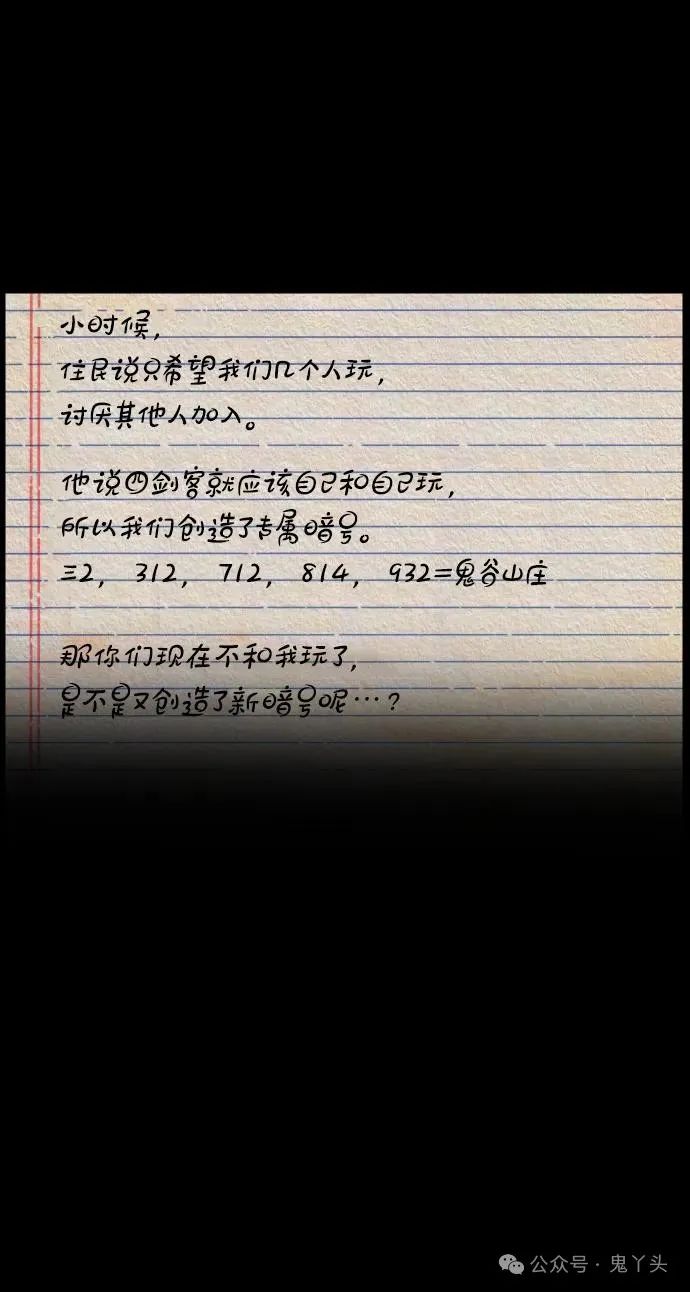 小时候，
住民说只希望我们几个人玩，
讨厌其他人加入。
他说四剑客就应该自己和自己玩，
所以我们创造了专属暗号。
三2， 312， 712， 814， 932=鬼谷山庄
那你们现在不和我玩了，
是不是又创造了新暗号呢…？
公众号·鬼丫头